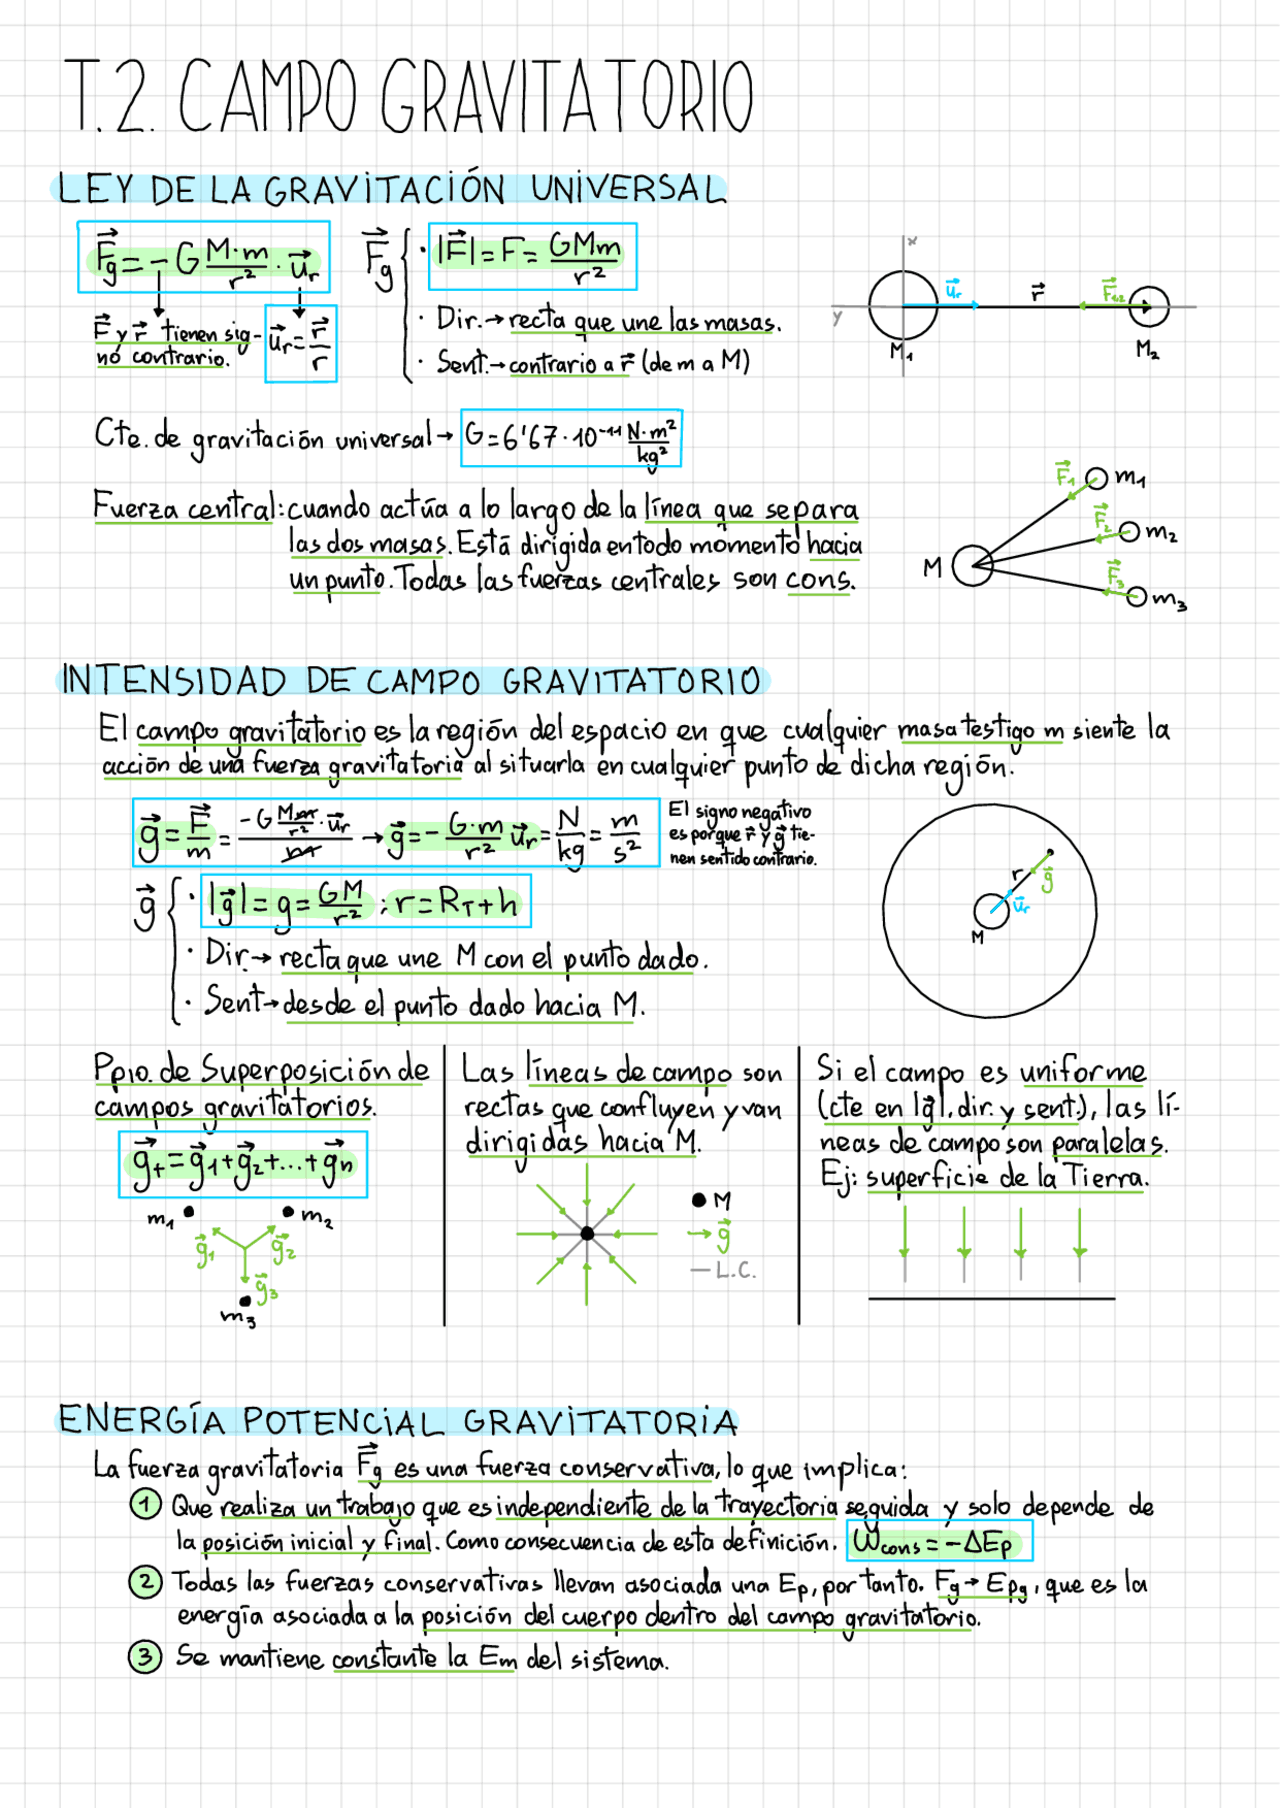 T.2. CAMPO GRAVITATORIO
LEY DE LA GRAVITACIÓN UNIVERSAL
F⃗g = - G M·m/r² · u⃗r
F⃗ y r⃗ tienen sig-
no contrario.
u⃗r = r⃗/r
F⃗g { · |F⃗| = F = GMm/r²
· Dir. → recta que une las masas.
· Sent. → contrario a r⃗ (de m a M)
x
y
u⃗r
r⃗
F⃗1,2
M₁
M₂
Cte. de gravitación universal → G = 6'67 · 10⁻¹¹ N·m²/kg²
Fuerza central: cuando actúa a lo largo de la línea que separa
las dos masas. Está dirigida en todo momento hacia
un punto. Todas las fuerzas centrales son cons.
F⃗₁ m₁
F⃗₂ m₂
M
F⃗₃ m₃
INTENSIDAD DE CAMPO GRAVITATORIO
El campo gravitatorio es la región del espacio en que cualquier masa testigo m siente la
acción de una fuerza gravitatoria al situarla en cualquier punto de dicha región.
g⃗ = F⃗/m = (-G Mm/r² · u⃗r)/m → g⃗ = - G·m/r² u⃗r = N/kg = m/s²
El signo negativo
es porque r⃗ y g⃗ tie-
nen sentido contrario.
g⃗ { · |g⃗| = g = GM/r² ; r = RT + h
· Dir. → recta que une M con el punto dado.
· Sent → desde el punto dado hacia M.
r
g⃗
u⃗r
M
Ppio. de Superposición de
campos gravitatorios.
g⃗t = g⃗₁ + g⃗₂ + ... + g⃗n
m₁ m₂
g⃗₁ g⃗₂
g⃗₃
m₃
Las líneas de campo son
rectas que confluyen y van
dirigidas hacia M.
● M
→ g⃗
— L.C.
Si el campo es uniforme
(cte en |g⃗|, dir. y sent.), las lí-
neas de campo son paralelas.
Ej: superficie de la Tierra.
ENERGÍA POTENCIAL GRAVITATORIA
La fuerza gravitatoria F⃗g es una fuerza conservativa, lo que implica:
① Que realiza un trabajo que es independiente de la trayectoria seguida y solo depende de
la posición inicial y final. Como consecuencia de esta definición. Wcons = -ΔEp
② Todas las fuerzas conservativas llevan asociada una Ep, por tanto. Fg → Epg, que es la
energía asociada a la posición del cuerpo dentro del campo gravitatorio.
③ Se mantiene constante la Em del sistema.